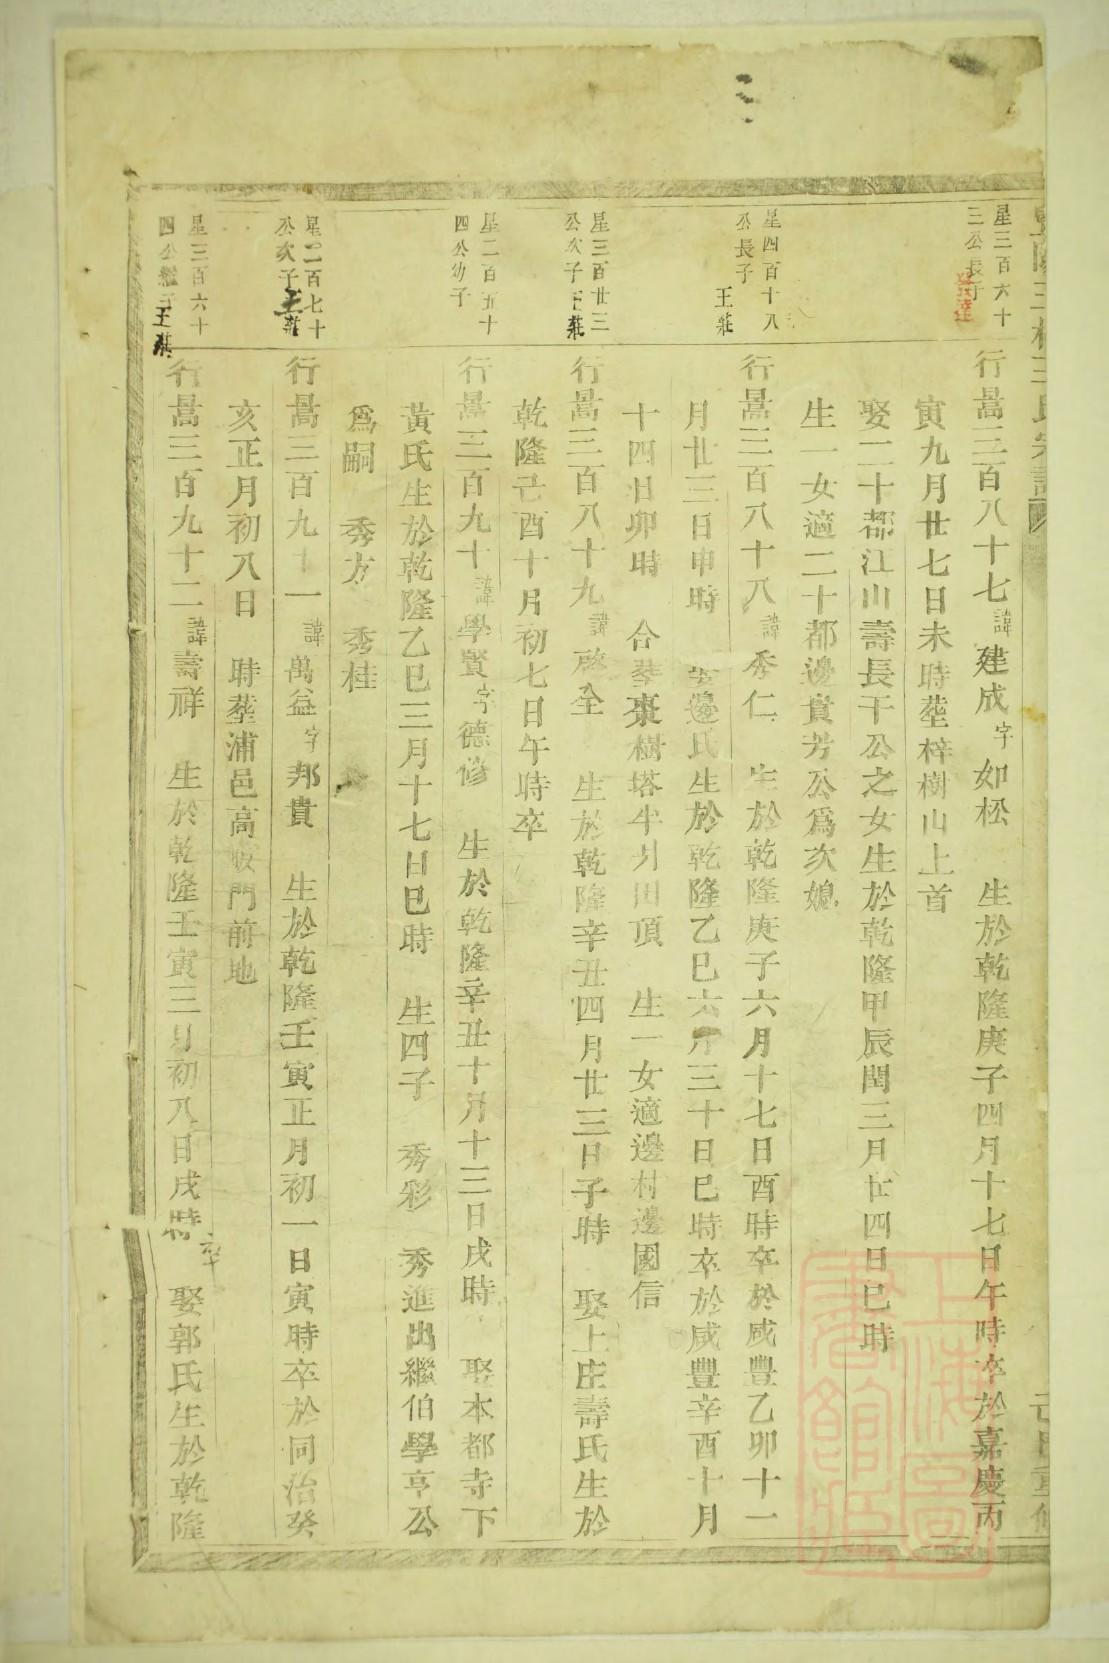 星三百六十
三公長子
行暠三百八十七諱建成字如松　生於乾隆庚子四月十七日午時卒於嘉慶丙
寅九月廿七日未時塟梓樹山上首
娶二十都江山壽長干公之女生於乾隆甲辰閏三月廿四日巳時
生一女適二十都邊貴芳公爲次媳
星四百十八
公長子
王莊
行暠三百八十八諱秀仁　生於乾隆庚子六月十七日酉時卒於咸豐乙卯十一
月廿三日申時　娶邊氏生於乾隆乙巳六月三十日巳時卒於咸豐辛酉十月
十四日卯時　合塟棗樹塔牛爿田頂　生一女適邊村邊國信
星三百廿三
公次子
王莊
行暠三百八十九諱啟全　生於乾隆辛丑四月廿三日子時　娶上庄壽氏生於
乾隆己酉十月初七日午時卒
星二百五十
四公幼子
行暠三百九十諱學賢字德修　生於乾隆辛丑十月十三日戌時　娶本都寺下
黃氏生於乾隆乙巳三月十七日巳時　生四子　秀彩　秀進出繼伯學亨公
爲嗣　秀方　秀桂
星二百七十
公次子
王莊
行暠三百九十一諱萬益字邦貴　生於乾隆壬寅正月初一日寅時卒於同治癸
亥正月初八日　時塟浦邑高坂門前地
星三百六十
四公繼子
王莊
行暠三百九十二諱壽祥　生於乾隆壬寅三月初八日戌時卒　娶郭氏生於乾隆
上海圖書館藏